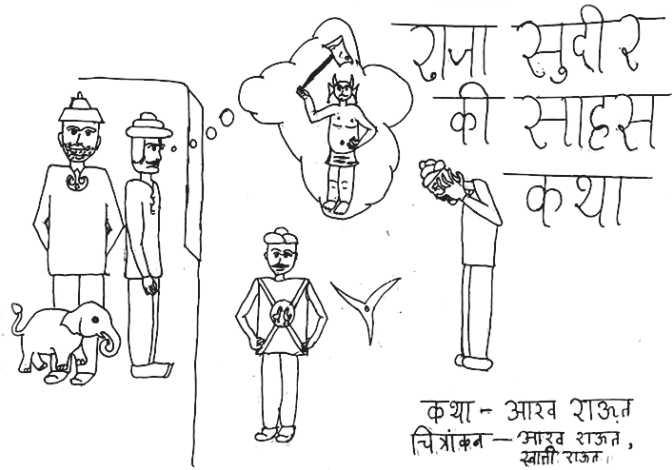 राजा सुदीर
की साहस
कथा
कथा - आरव राऊत
चित्रांकन - आरव राऊत,
स्वाती राऊत।